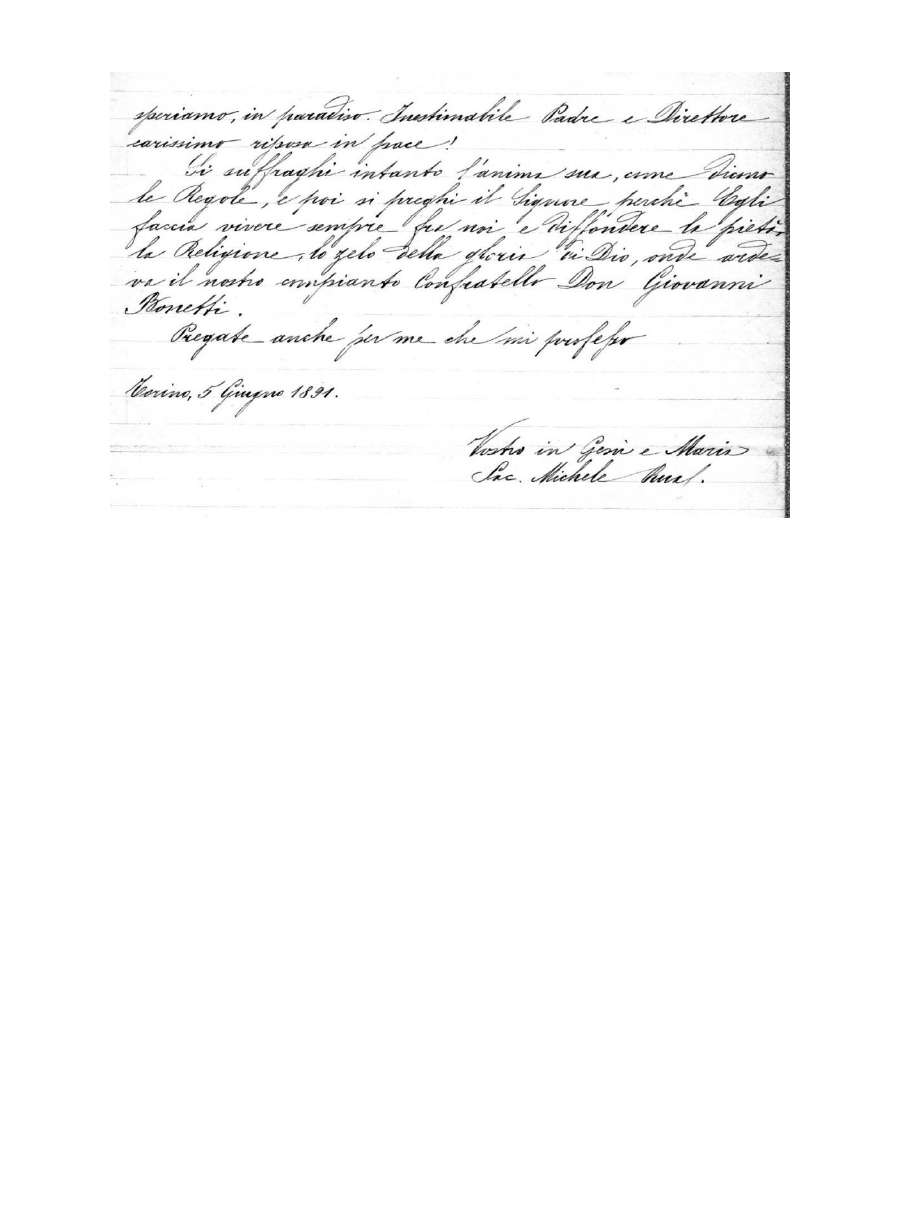 speriamo, in paradiso. Inestimabile Padre e Direttore
carissimo riposa in pace!
Si suffraghi intanto l'anima sua, come dicono
le Regole, e poi si preghi il Signore perchè Egli
faccia vivere sempre fra noi e diffondere la pietà,
la Religione, lo zelo della gloria di Dio, onde arde=
va il nostro compianto Confratello Don Giovanni
Bonetti.
Pregate anche per me che mi professo
Torino, 5 Giugno 1891.
Vostro in Gesù e Maria
Sac. Michele Rua